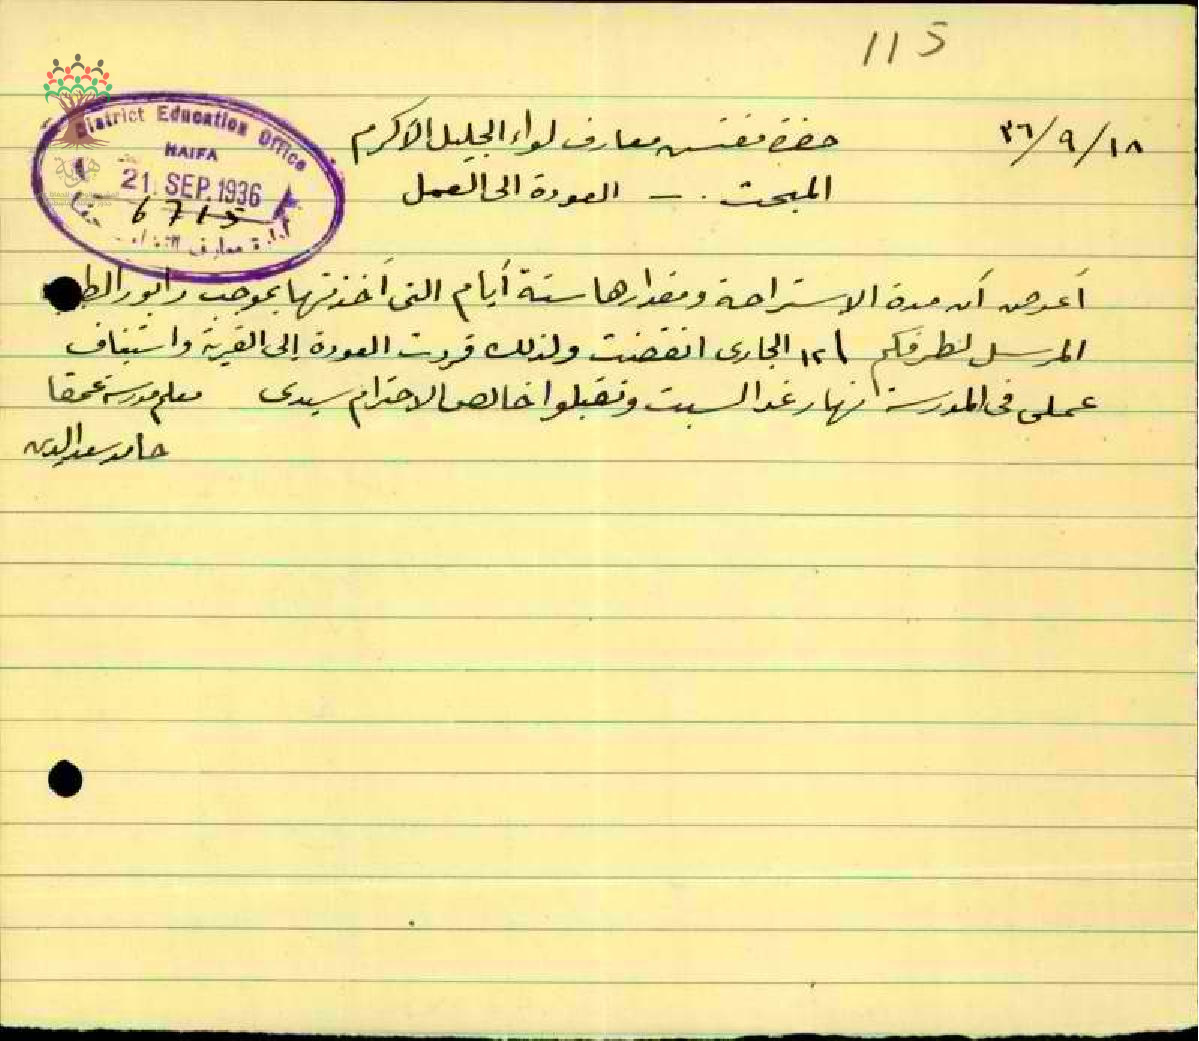 115
١٨/٩/٣٦
حضرة مفتش معارف لواء الجليل الأكرم
المبحث . — العودة الى العمل
District Education Office
HAIFA
21. SEP. 1936
6715
ادارة معارف
أعرض أن مدة الاستراحة ومقدارها ستة أيام التى أخذتها بموجب رابور الطبـ
المرسل لطرفكم ١٢ الجارى انقضت ولذلك قررت العودة إلى القرية واستئناف
عملى فى المدرسة نهار غد السبت وتقبلوا خالص الاحترام سيدى معلم مدرسة عمقا
حامد سعد الدين